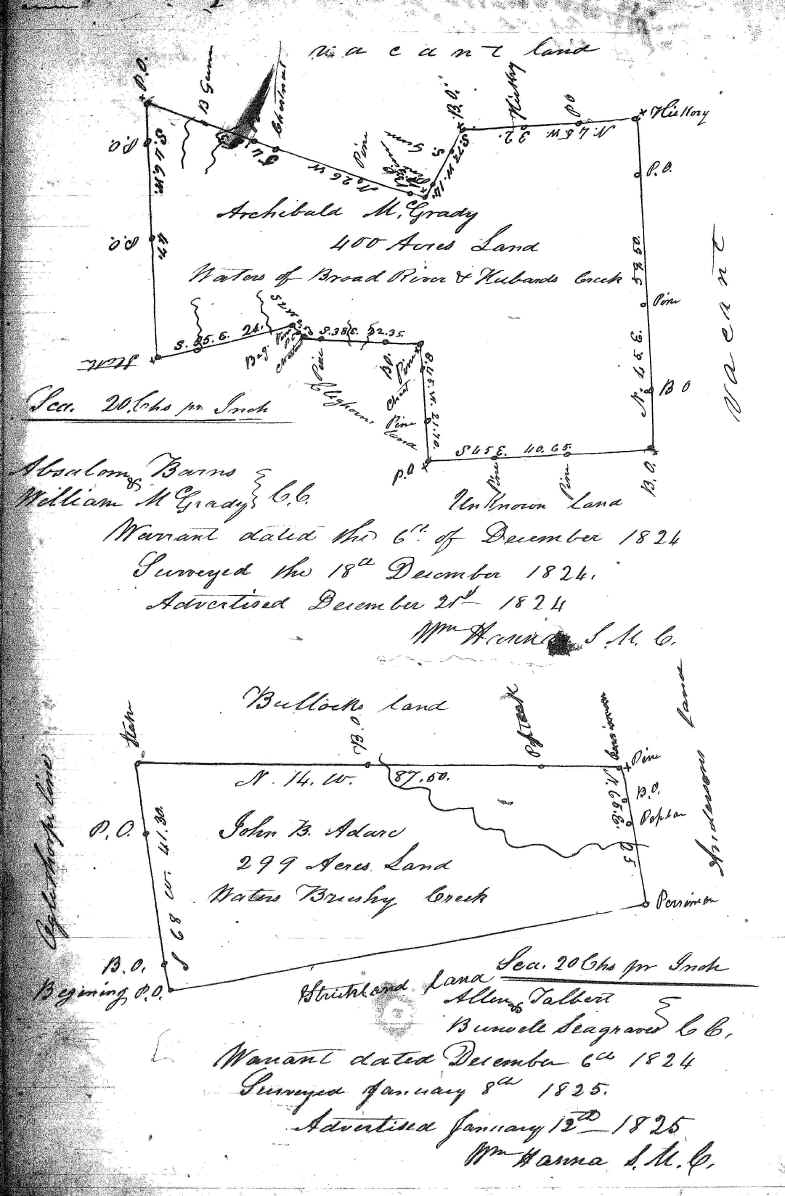 vacant land
P.O.
B Gum
Chestnut
Pine
B.O.
Hickory
PO
Hickory
N. 45 W
32.
P.O.
S. 46 W.
47
P.O.
P.O.
N 26 W
S. 72 W. 14.
Archibald Mc Grady
400 Acres Land
Waters of Broad River & Hubards Creek
N. 45 E. 57.50.
Pine
B O
Vacant
Stake
S. 35. E. 24.
Beg. Pine
S. 38 E. 22.35
Pine
BO.
Pine
Cleghorns land
S. 45 W. 21.70.
Pine
P.O
S 45 E. 40.65
Pine
Pine
B.O.
Sca. 20 Chs pr Inch
Unknown land
Absalom Barns
& William Mc Grady } C.C.
Warrant dated the 6th of December 1824
Surveyed the 18th December 1824.
Advertised December 21st 1824
Wm Hanna S. M. C.
Bullocks land
Stake
B.O
Pine
N. 14. W. 87.50.
N. 65. E. 25
B.O.
Poplar
Andersons land
Oglethorpe line
P.O.
S 68 W. 41.30.
John B. Adare
299 Acres Land
Waters Brushy Creek
B.O.
Begining P.O.
Strickland land
Sca. 20 Chs pr Inch
Allen Talbert
& Burwell Seagraves } C C.
Warrant dated December 6th 1824
Surveyed January 8th 1825.
Advertised January 12th 1825
Wm Hanna S. M. C.